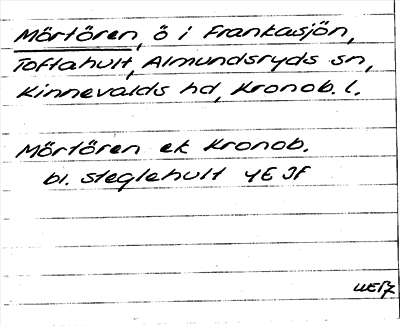 Mörtören, ö i Frankasjön,
Toftahult, Almundsryds sn,
Kinnevalds hd, Kronob. l.
Mörtören ek Kronob.
bl. Steglehult 4E JF